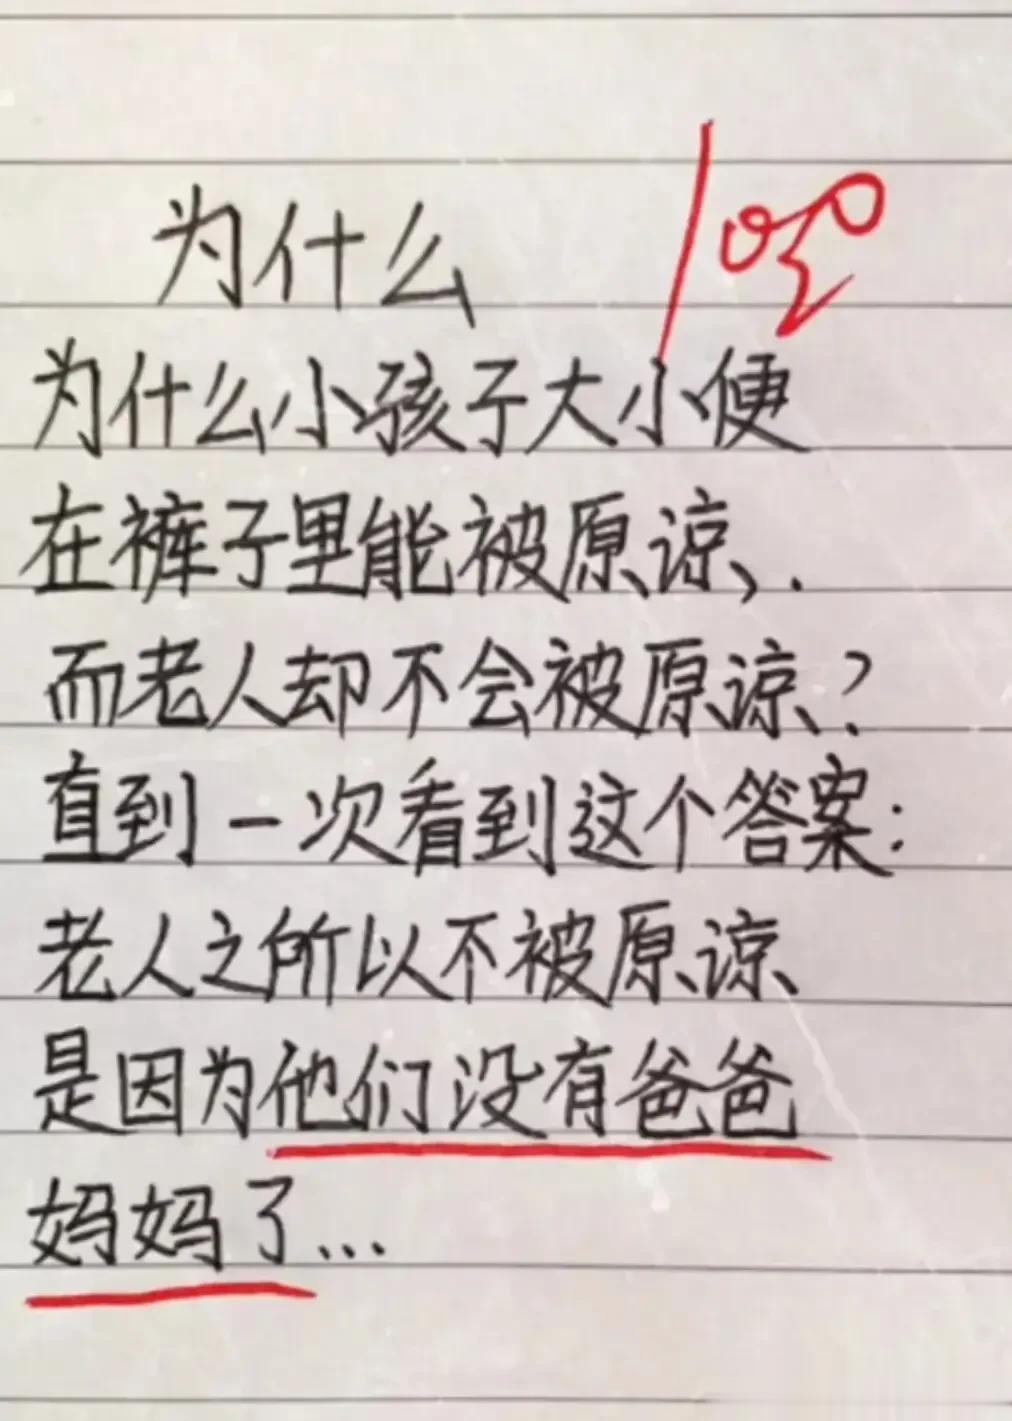 为什么
为什么小孩子大小便
在裤子里能被原谅,.
而老人却不会被原谅?
直到一次看到这个答案:
老人之所以不被原谅
是因为他们没有爸爸
妈妈了...